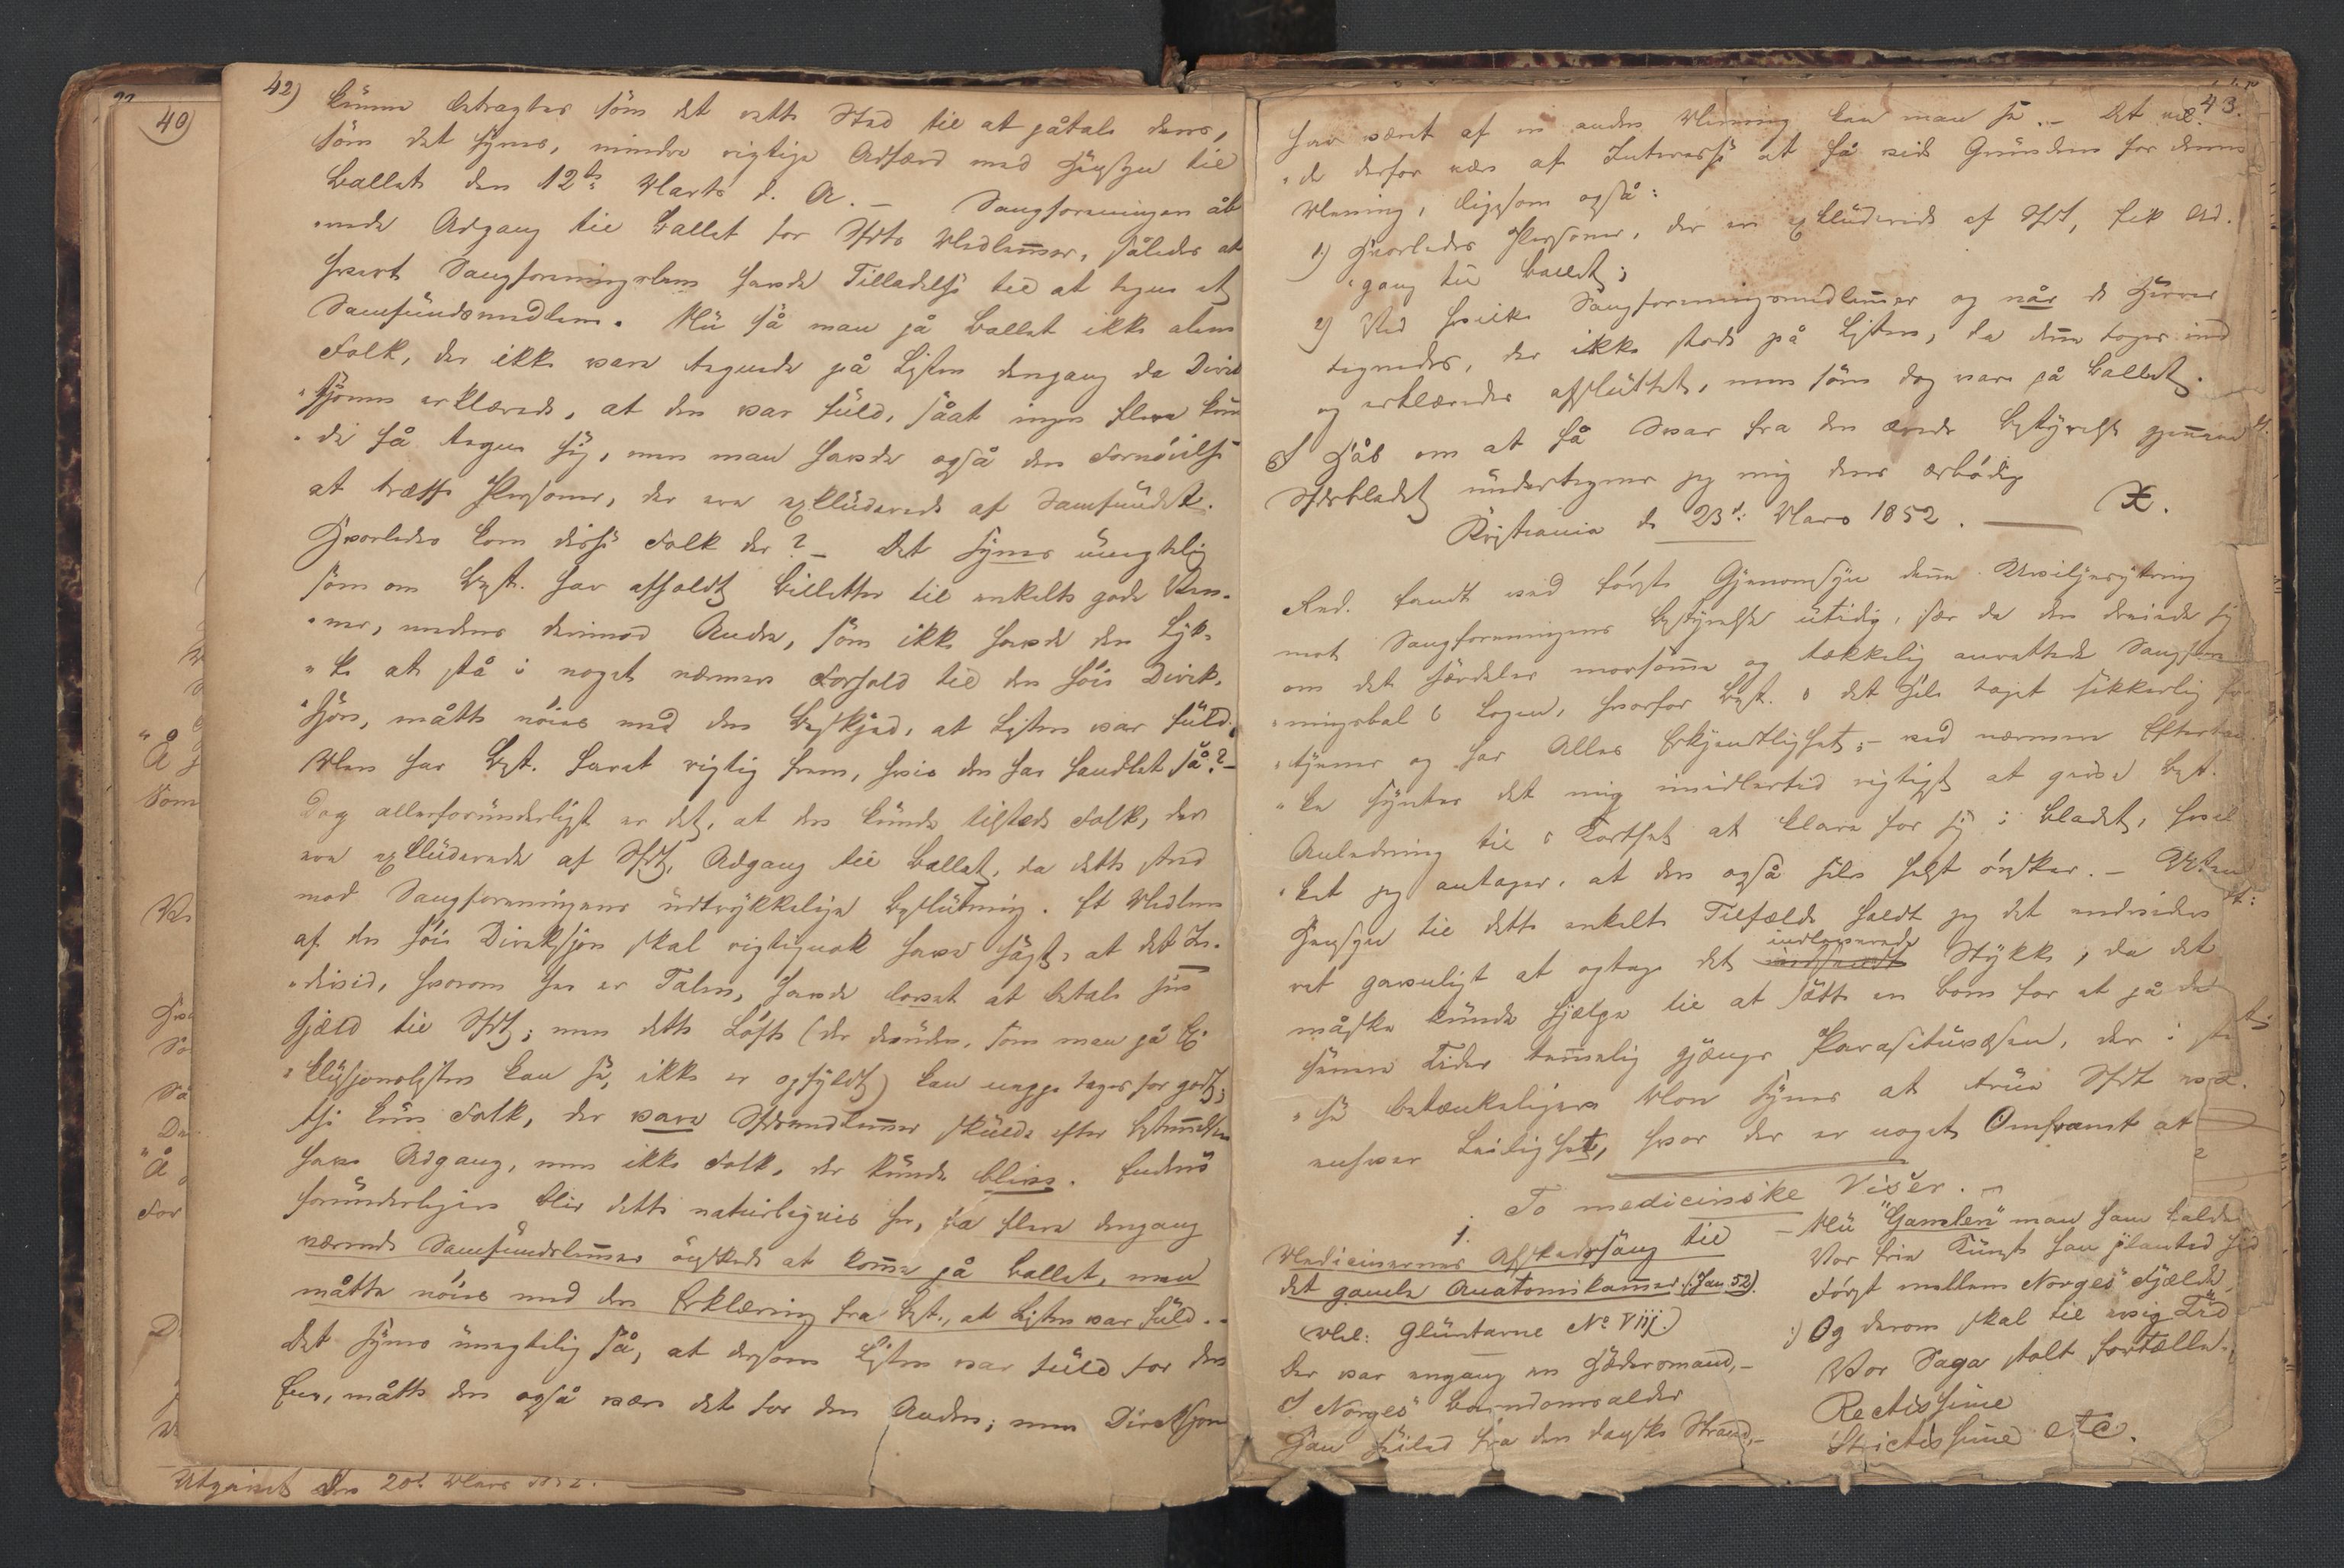 40)
Utgivet den 20d Mars 1852.
42)
kunne betragtes som det rette Sted til at påtale dens,
som det synes, mindre rigtige Adfærd med Hensyn til
Ballet den 12te Marts d. A. — Sangforeningen åb-
"nede Adgang til Ballet for Sfdts Medlemmer, således at
hvert Sangforeningslem havde Tilladelse til at tegne et
Samfundsmedlem. Nu så man på Ballet ikke alene
Folk, der ikke vare tegnede på Listen dengang da Direk-
"sjonen erklærede, at den var fuld, såat ingen flere kun-
"de få tegne sig, men man havde også den Fornöielse
at træffe Personer, der ere exkluderede af Samfundet.
Hvorledes kom disse Folk der? — Det synes unegtelig
som om Best. har afholdt Billetter til enkelte gode Ven-
"ner, medens derimod Andre, som ikke havde den Lyk-
"ke at stå i noget nærmere Forhold til den höie Direk-
"sjon, måtte nöies med den Beskjed, at Listen var fuld.
Men har Best. båret rigtig frem, hvis den har handlet så? —
Dog allerforunderligst er det, at den kunde tilstede Folk, der
ere exkluderede af Sfdt, Adgang til Ballet, da dette stred
mod Sangforeningens udtrykkelige Beslutning. Et Medlem
af den höie Direksjon skal rigtignok have sagt, at det In-
"divid, hvorom her er Talen, havde lovet at betale sin
Gjæld til Sfdt; men dette Löfte (der desuden, som man på Ex-
"klusjonslisten kan se, ikke er opfyldt) kan neppe tages for godt;
thi kun Folk, der vare Sfdsmedlemmer skulde efter Bestemmelsen
have Adgang, men ikke Folk, der kunde blive. Endnu
forunderligere blir dette naturligvis her, da flere dengang
værende Samfundslemmer önskede at komme på Ballet, men
måtte nöies med den Erklæring fra Best., at Listen var fuld. —
Det synes unegtelig så, at dersom Listen var fuld for den
Ene, måtte den også være det for den Anden; men Direksjonen
43.
har været af en anden Mening kan man se. — Det vil-
"de derfor være af Interesse at få vide Grunden for denne
Mening, ligesom også:
1) Hvorledes Personer, der er exkluderede af Sfdt, fik Ad-
"gang til Ballet;
2) Ved hvilke Sangforeningsmedlemmer og når de Herrer
tegnedes, der ikke stode på Listen, da denne toges ind
og erklæredes afsluttet, men som dog vare på Ballet.
I Håb om at få Svar fra den ærede Bestyrelse gjennem
Sfdsbladet undertegner jeg mig dens ærbödig
Kristiania d. 23d: Mars 1852. — X.
Red. fandt ved förste Gjenomsyn denne Uviljesytring
mot Sangforeningens Bestyrelse utidig, især da den dreiede sig
om det særdeles morsomme og tækkelig anrettede Sangfore-
"ningsbal i Logen, hvorfor Best. i det Hele taget sikkerlig for-
"tjener og har Alles Erkjendtlighet; — ved nærmere Eftertan-
"ke syntes det mig imidlertid rigtigst at give Best.
Anledning til i Korthet at klare for sig i Bladet, hvil-
"ket jeg antager, at den også selv helst önsker. — Uten
Hensyn til dette enkelte Tilfælde holdt jeg det endvidere
ret gavnligt at optage det indleverede Stykke, da det
måske kunde hjælpe til at sætte en Bom for et på de
senere Tider temmelig gjængs Parasituvæsen, der i
betænkeligere Mon synes at true Sfdt ved
enhver Leilighet, hvor der er noget Omframt at
To medicinske Viser. —
1.
Medicinernes Afskedssang til
det gamle Anatomikammer. (Jan. 52).
(Mel: Gluntarne No VIII.)
Der var engang en Hædersmand, —
I Norges Barndomsalder
Han seiled fra den danske Strand, —
— Nu "Gamlen" man ham kalder
Vor frie Kunst han planted hid
Först mellem Norges Fjælde,
:) Og derom skal til evig Tid
Vor Saga stolt fortælle.
Rectissime
Strictissime etc.